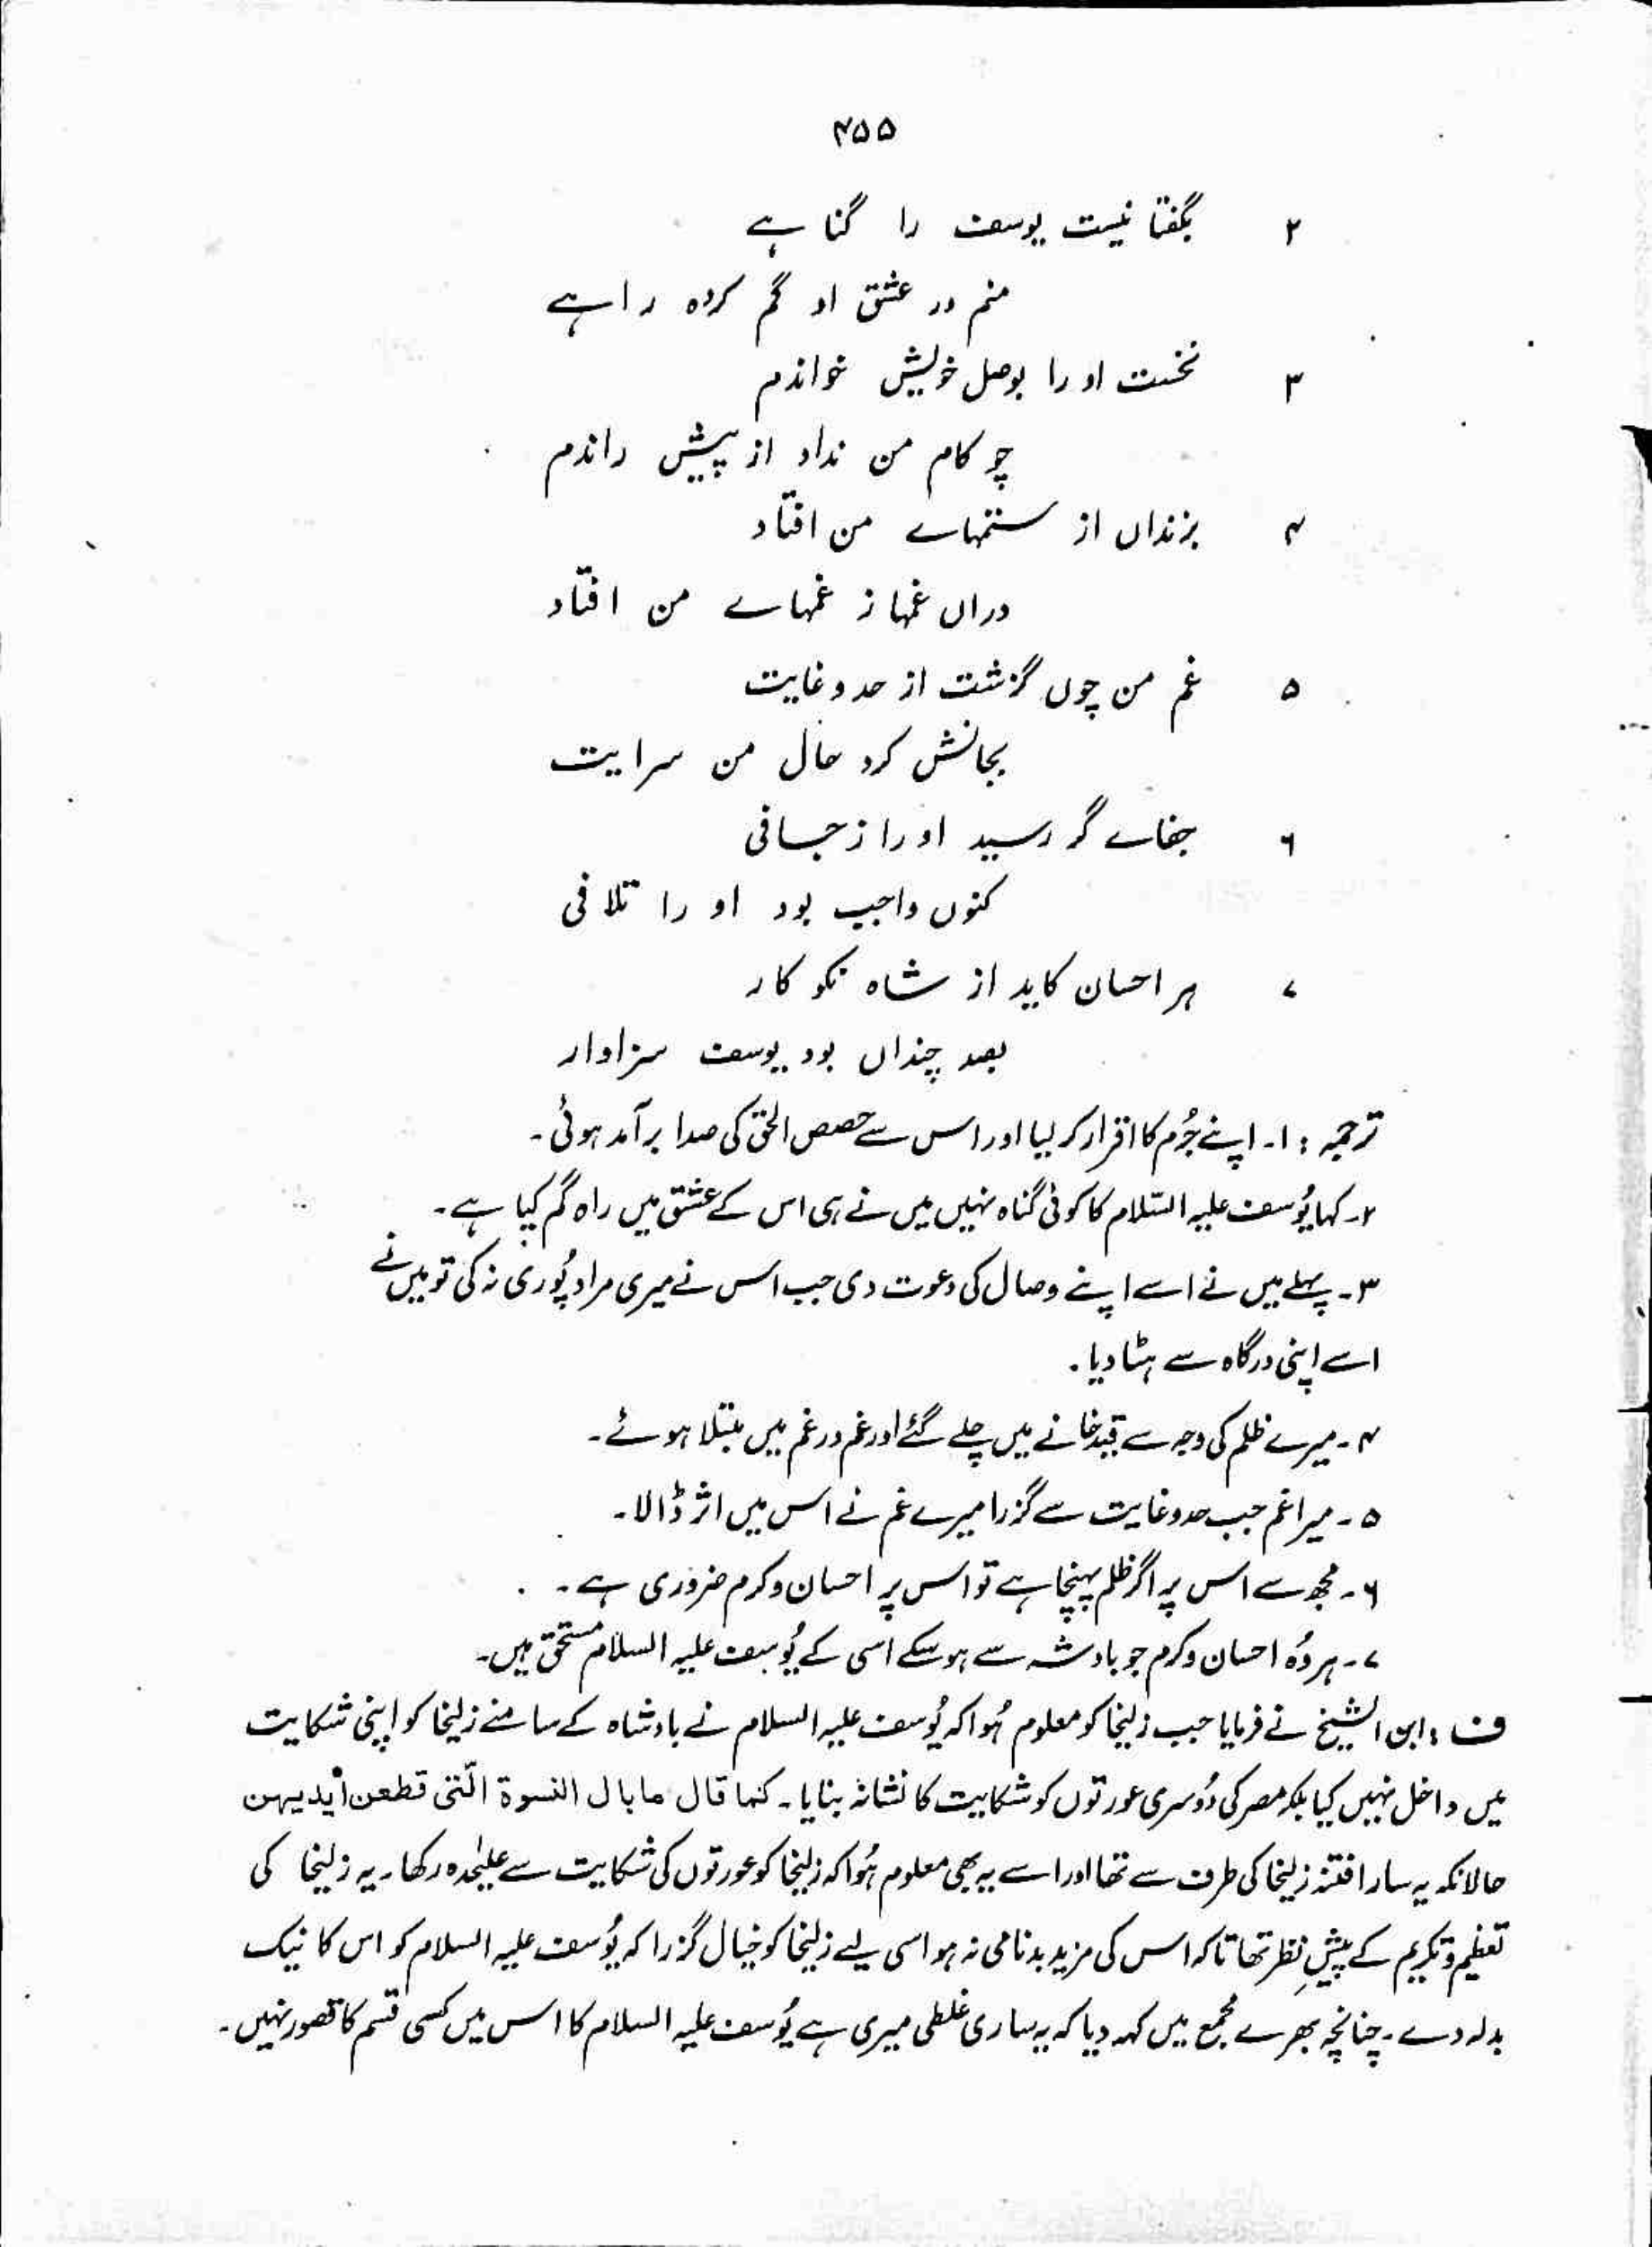 ۴۵۵
۲ بگفتا نیست یوسف را گنا ہے
منم در عشق او گم کردہ را ہے
۳ نخست او را بوصل خویش خواندم
چو کام من نداد از پیش راندم
۴ بزنداں از ستمہاے من افتاد
دراں غمہا ز غمہاے من افتاد
۵ غم من چوں گزشت از حد و غایت
بجانش کرد حال من سرایت
۶ جفاے گر رسید او را ز جافی
کنوں واجب بود او را تلافی
۷ ہر احسان کاید از شاہ نکو کار
بصد چنداں بود یوسف سزاوار
ترجمہ : ۱۔ اپنے جُرم کا اقرار کر لیا اور اس سے حصص الحق کی صدا برآمد ہوئی۔
۲۔ کہا یُوسف علیہ السّلام کا کوئی گناہ نہیں میں نے ہی اس کے عشق میں راہ گم کیا ہے۔
۳۔ پہلے میں نے اسے اپنے وصال کی دعوت دی جب اس نے میری مراد پُوری نہ کی تو میں نے
اسے اپنی درگاہ سے ہٹا دیا۔
۴۔ میرے ظلم کی وجہ سے قیدخانے میں چلے گئے اور غم در غم میں مبتلا ہوئے۔
۵۔ میرا غم جب حد و غایت سے گزرا میرے غم نے اس میں اثر ڈالا۔
۶۔ مجھ سے اس پر اگر ظلم پہنچا ہے تو اس پر احسان و کرم ضروری ہے۔
۷۔ ہر وُہ احسان و کرم جو بادشہ سے ہو سکے اسی کے یُوسف علیہ السلام مستحق ہیں۔
ف : ابن الشیخ نے فرمایا جب زلیخا کو معلوم ہُوا کہ یُوسف علیہ السلام نے بادشاہ کے سامنے زلیخا کو اپنی شکایت
میں داخل نہیں کیا بلکہ مصر کی دُوسری عورتوں کو شکایت کا نشانہ بنایا۔ کما قال ما بال النسوة الّتی قطعن أیدیہن
حالانکہ یہ سارا فتنہ زلیخا کی طرف سے تھا اور اسے یہ بھی معلوم ہُوا کہ زلیخا کو عورتوں کی شکایت سے علیٰحدہ رکھا۔ یہ زلیخا کی
تعظیم و تکریم کے پیشِ نظر تھا تاکہ اس کی مزید بدنامی نہ ہو اسی لیے زلیخا کو خیال گزرا کہ یُوسف علیہ السلام کو اس کا نیک
بدلہ دے۔ چنانچہ بھرے مجمع میں کہہ دیا کہ یہ ساری غلطی میری ہے یُوسف علیہ السلام کا اس میں کسی قسم کا قصور نہیں۔